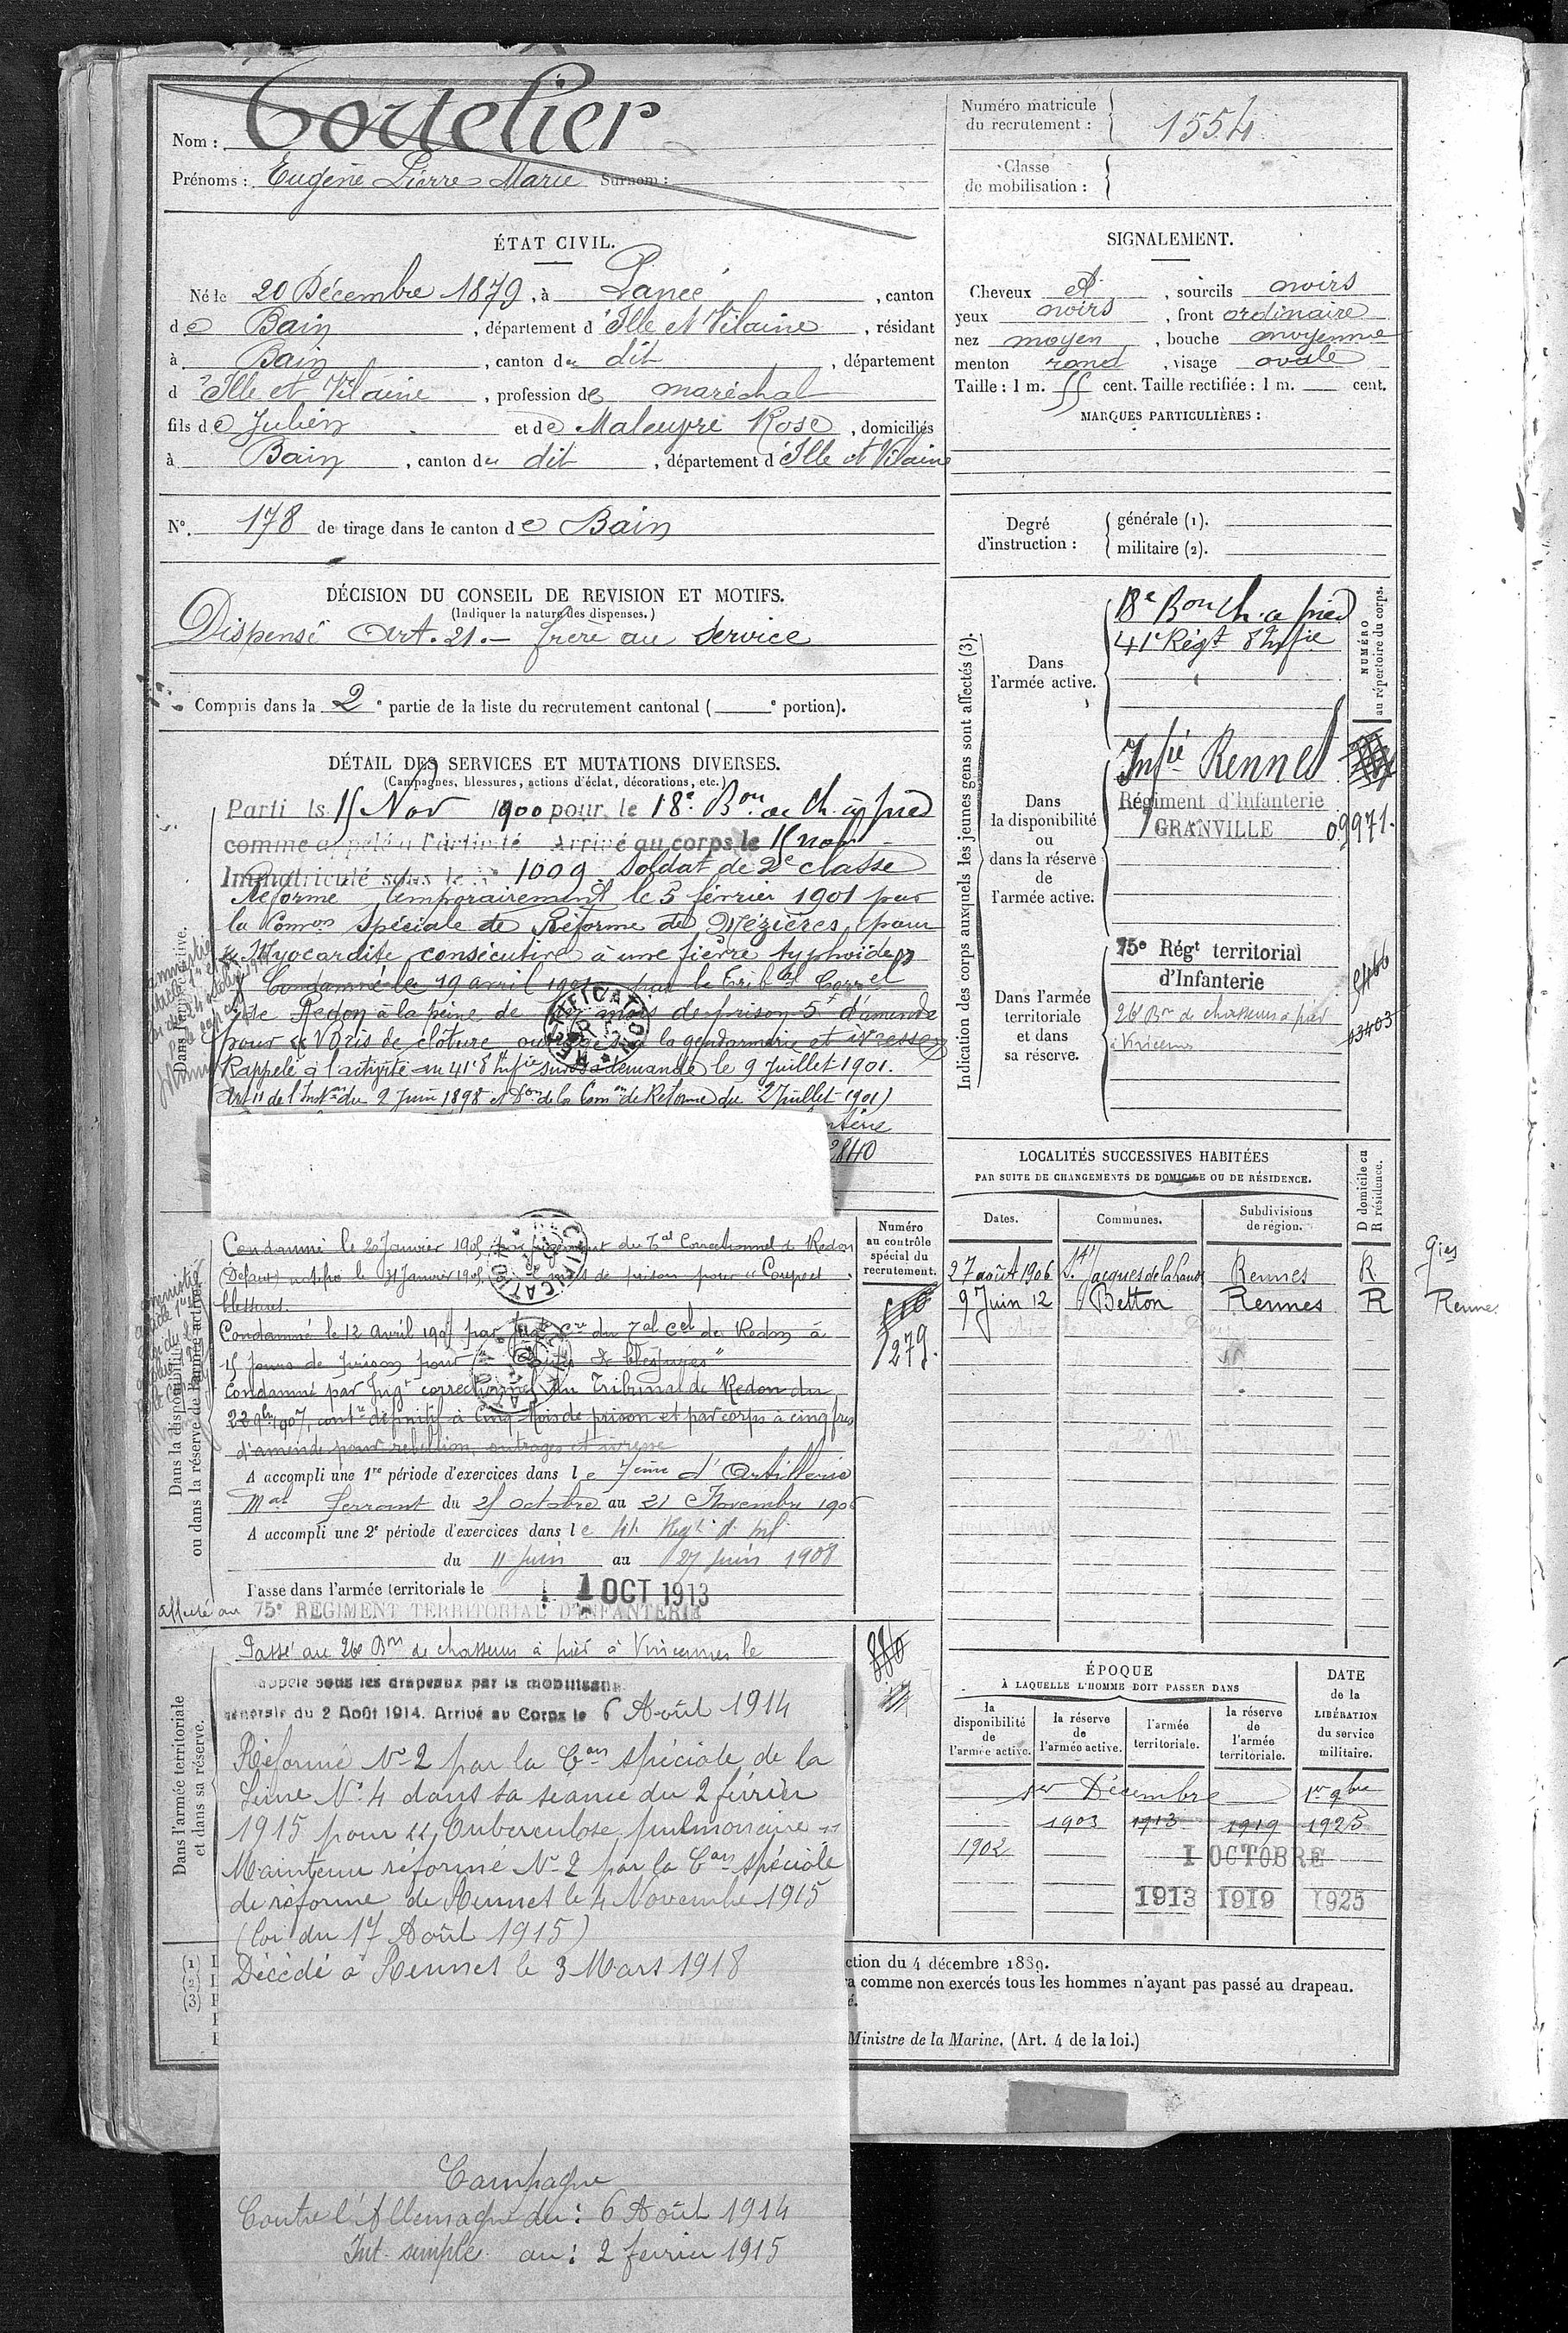 Nom : Cortelier
Prénoms : Eugène Pierre Marie Surnom :
Numéro matricule du recrutement : 1554
Classe de mobilisation :
ÉTAT CIVIL.
Né le 20 Décembre 1879, à Pancé, canton
de Bain, département d'Ille et Vilaine, résidant
à Bain, canton du dit, département
d'Ille et Vilaine, profession de maréchal
fils de Julien et de Maleuvre Rose, domiciliés
à Bain, canton du dit, département d'Ille et Vilaine
N° 178 de tirage dans le canton de Bain
DÉCISION DU CONSEIL DE REVISION ET MOTIFS.
(Indiquer la nature des dispenses.)
Dispensé Art. 21. – frère au service
Compris dans la 2e partie de la liste du recrutement cantonal ( e portion).
DÉTAIL DES SERVICES ET MUTATIONS DIVERSES.
(Campagnes, blessures, actions d'éclat, décorations, etc.)
Dans l'armée active.
Parti le 15 Nov 1900 pour le 18e Bon de Ch. à pied
comme appelé à l'activité Arrivé au corps le 15 nov
Immatriculé sous le N° 1009 Soldat de 2e classe
Réformé temporairement le 5 février 1901 par
la Comon spéciale de Réforme de Mézières, pour
"Myocardite consécutive à une fièvre typhoïde"
Condamné le 19 avril 1901 par le Tribal Correl
de Redon à la peine de mois de prison 5f d'amende
pour "Bris de clôture outrages à la gendarmerie et ivresse"
Rappelé à l'activité au 41e d'Infie sur sa demande le 9 Juillet 1901.
Art 11 de l'Inston du 2 Juin 1898 et Don de la Comon de Réforme du 2 Juillet 1901)
2840
Dans la disponibilité ou dans la réserve de l'armée active.
Condamné le 20 Janvier 1905, par jugement du Tal Correctionnel de Redon
(Défaut) le 31 Janvier 1905, mois de prison pour "Coups et
blessures.
Condamné le 12 Avril 190 par Jugt Cre du Tal Cel de Redon à
15 jours de prison pour "Coups et blessures"
Condamné par Jugt correctionnel du Tribunal de Redon du
22 9bre 1907, contre définitif à Cinq Mois de prison et par corps à cinq frcs
d'amende pour rebellion, outrages et ivresse
A accompli une 1re période d'exercices dans le 7ème d'Artillerie
Mal ferrant du 25 octobre au 21 Novembre 1906
A accompli une 2e période d'exercices dans le 41 Regt d'inf
du 11 juin au 27 juin 1908
Passé dans l'armée territoriale le 1 OCT 1913
affecté au 75e REGIMENT TERRITORIAL D'INFANTERIE
Numéro au contrôle spécial du recrutement.
1279.
Dans l'armée territoriale et dans sa réserve.
Passé au 26e Bon de chasseurs à pied à Vincennes le
Rappelé sous les drapeaux par la mobilisation
générale du 2 Août 1914. Arrivé au Corps le 6 Août 1914
Réformé N° 2 par la Con spéciale de la
Seine N° 4 dans sa séance du 2 février
1915 pour "Tuberculose pulmonaire"
Maintenu réformé N° 2 par la Con spéciale
de réforme de Rennes le 4 Novembre 1915
(loi du 17 Août 1915)
Décédé à Rennes le 3 Mars 1918
Campagne
Contre l'Allemagne du : 6 Août 1914
Int. simple au : 2 février 1915
SIGNALEMENT.
Cheveux et, sourcils noirs
yeux noirs, front ordinaire
nez moyen, bouche moyenne
menton rond, visage ovale
Taille : 1 m. 55 cent. Taille rectifiée : 1 m. cent.
MARQUES PARTICULIÈRES :
Degré d'instruction :
générale (1).
militaire (2).
Indication des corps auxquels les jeunes gens sont affectés (3).
NUMÉRO au répertoire du corps.
Dans l'armée active.
18e Bon Ch. à pied
41e Régt d'Infie
Dans la disponibilité ou dans la réserve de l'armée active.
Infie Rennes
Régiment d'Infanterie
GRANVILLE 09971.
Dans l'armée territoriale et dans sa réserve.
75e Régt territorial
d'Infanterie
26e Bon de chasseurs à pied
à Vincennes 13403
LOCALITÉS SUCCESSIVES HABITÉES
PAR SUITE DE CHANGEMENTS DE DOMICILE OU DE RÉSIDENCE.
Dates. Communes. Subdivisions de région. D domicile ou R résidence.
27 août 1906 St Jacques de la Lande Rennes R
9 Juin 12 Betton Rennes R Rennes
ÉPOQUE
À LAQUELLE L'HOMME DOIT PASSER DANS
la disponibilité de l'armée active.
la réserve de l'armée active.
l'armée territoriale.
la réserve de l'armée territoriale.
DATE de la LIBÉRATION du service militaire.
1er Décembre 1er 9bre
1903 1913 1919 1925
1902 1 OCTOBRE
1913 1919 1925
(1)
(2)
(3)
ction du 4 décembre 1889.
a comme non exercés tous les hommes n'ayant pas passé au drapeau.
é.
Ministre de la Marine. (Art. 4 de la loi.)